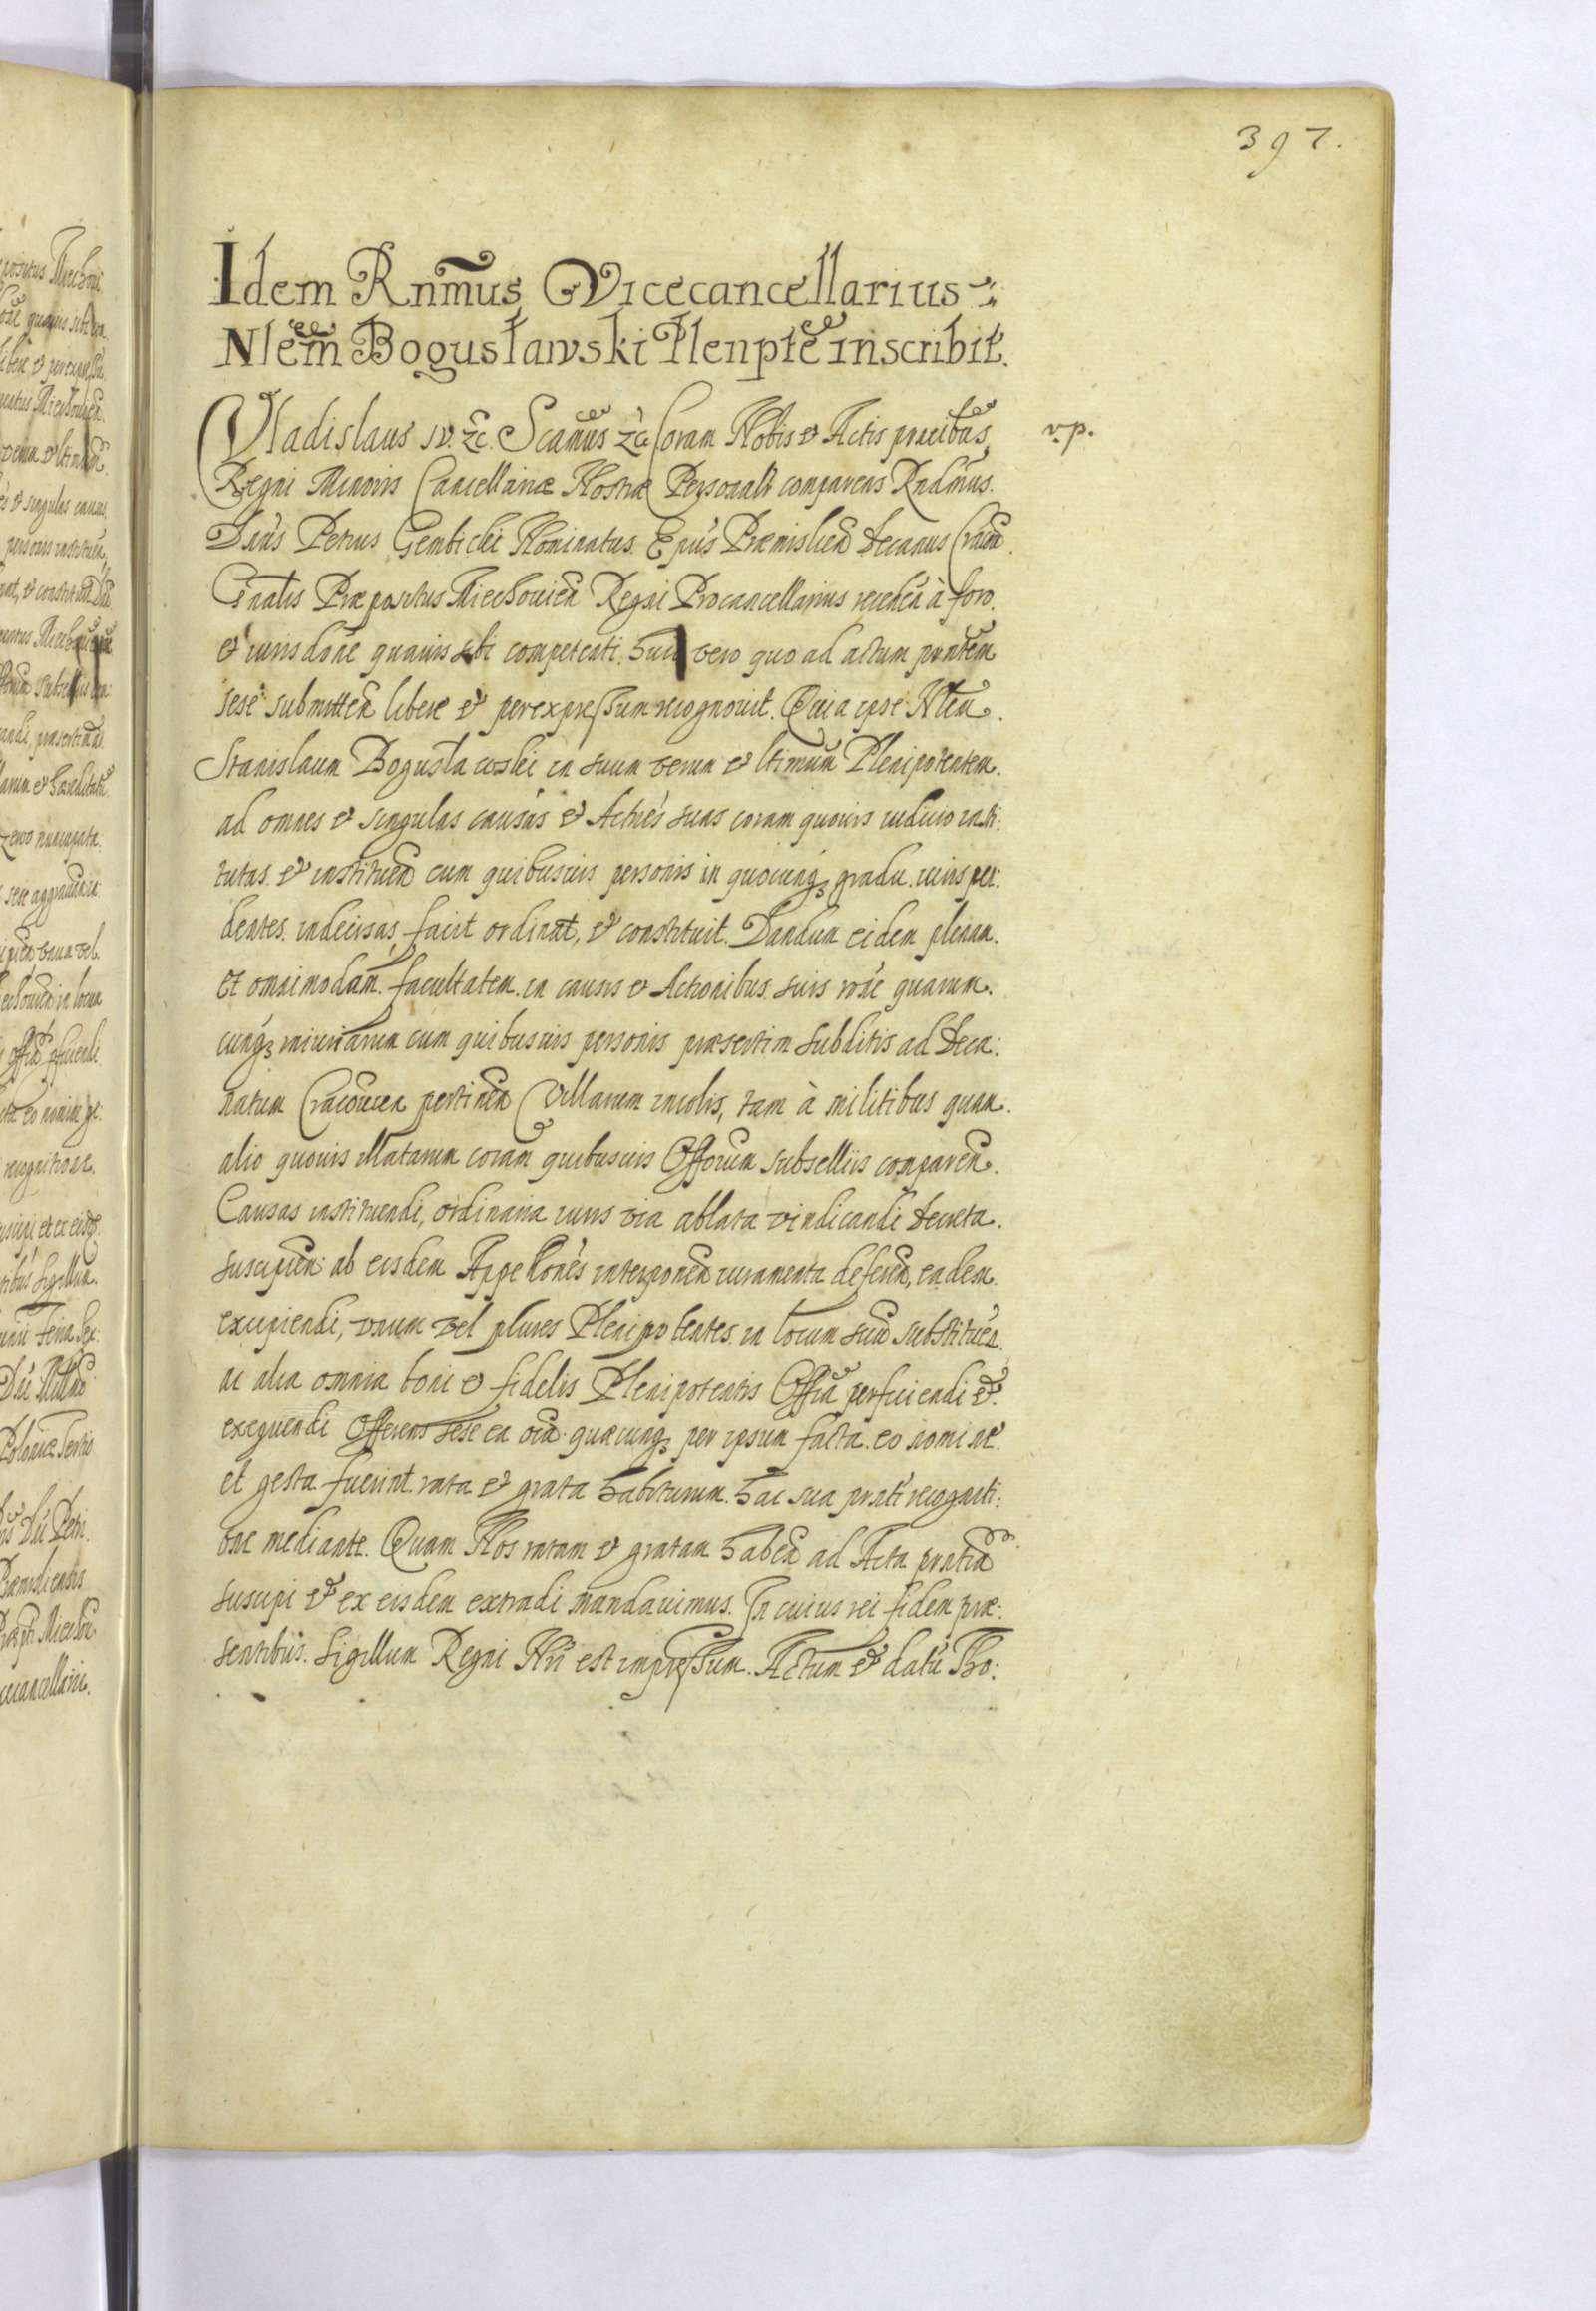 397.
Idem Rn̄mus Vicecancellarius
Nlēm Bogusławski Plenptē inscribit.
Vladislaus IV. &c. Scāmus &c. Coram Nobis et Actis prntibus v.p.
Regni Minoris Cancellariæ Nostræ Personalr comparens Rndmus.
Dnūs Petrus Gembicki Nominatus Epūs Præmislien Decanus Cracōn
Gnālis Præpositus Miechouien Regni Procancellarius recedēn à foro
et iurisdōne quauis sibi competenti. huic vero quo ad actum prntem
sese submitten libere et per expressum recognouit. Quia ipse Nlem
Stanislaum Bogusławski in suum verum et ltimum Plenipotentem
ad omnes et singulas causas et Actnēs suas coram quouis iudicio insti:
tutas et instituen cum quibusuis personis in quocunq gradu iuris pen:
dentes indecisas, facit ordinat, et constituit. Dandum eidem plenam
et omnimodam facultatem in causis et Actionibus suis rōne quarum
cunq iniuriarum cum quibusuis personis præsertim subditis ad Deca:
natum Cracouien pertinen Villarum incolis, tam à militibus quam
alio quouis illatarum coram quibusuis Offorum subselliis comparen
Causas instituendi, ordinaria iuris via ablata vindicandi Decreta
suscipien: ab eisdem Appellōnes interponen iuramenta deferen, eadem
excipiendi, vnum vel plures Plenipotentes in locum suū substituen
ac alia omnia boni et fidelis Plenipotentis Offia perficiendi et
exequendi Offerens sese ea oīa quæcunq per ipsum facta eo nomine
et gesta fuerint rata et grata habiturum. hac sua prnti recogniti:
one mediante. Quam Nos ratam et gratam haben ad Acta prntia
suscipi et ex eisdem extradi mandauimus. In cuius rei fidem præ:
sentibus. Sigillum Regni Nri est impressum. Actum et datū Tho: